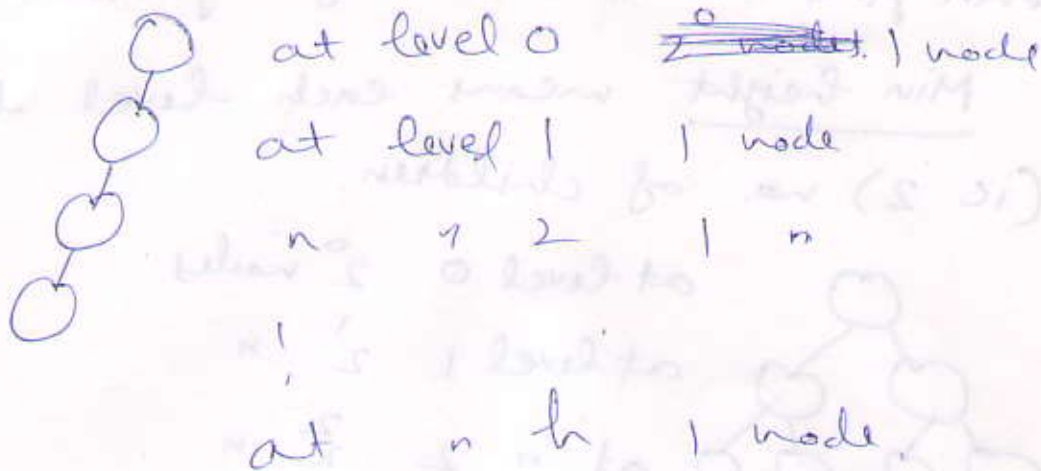 at level 0 1 node
at level 1 1 node
" " 2 1 "
at " h 1 node.